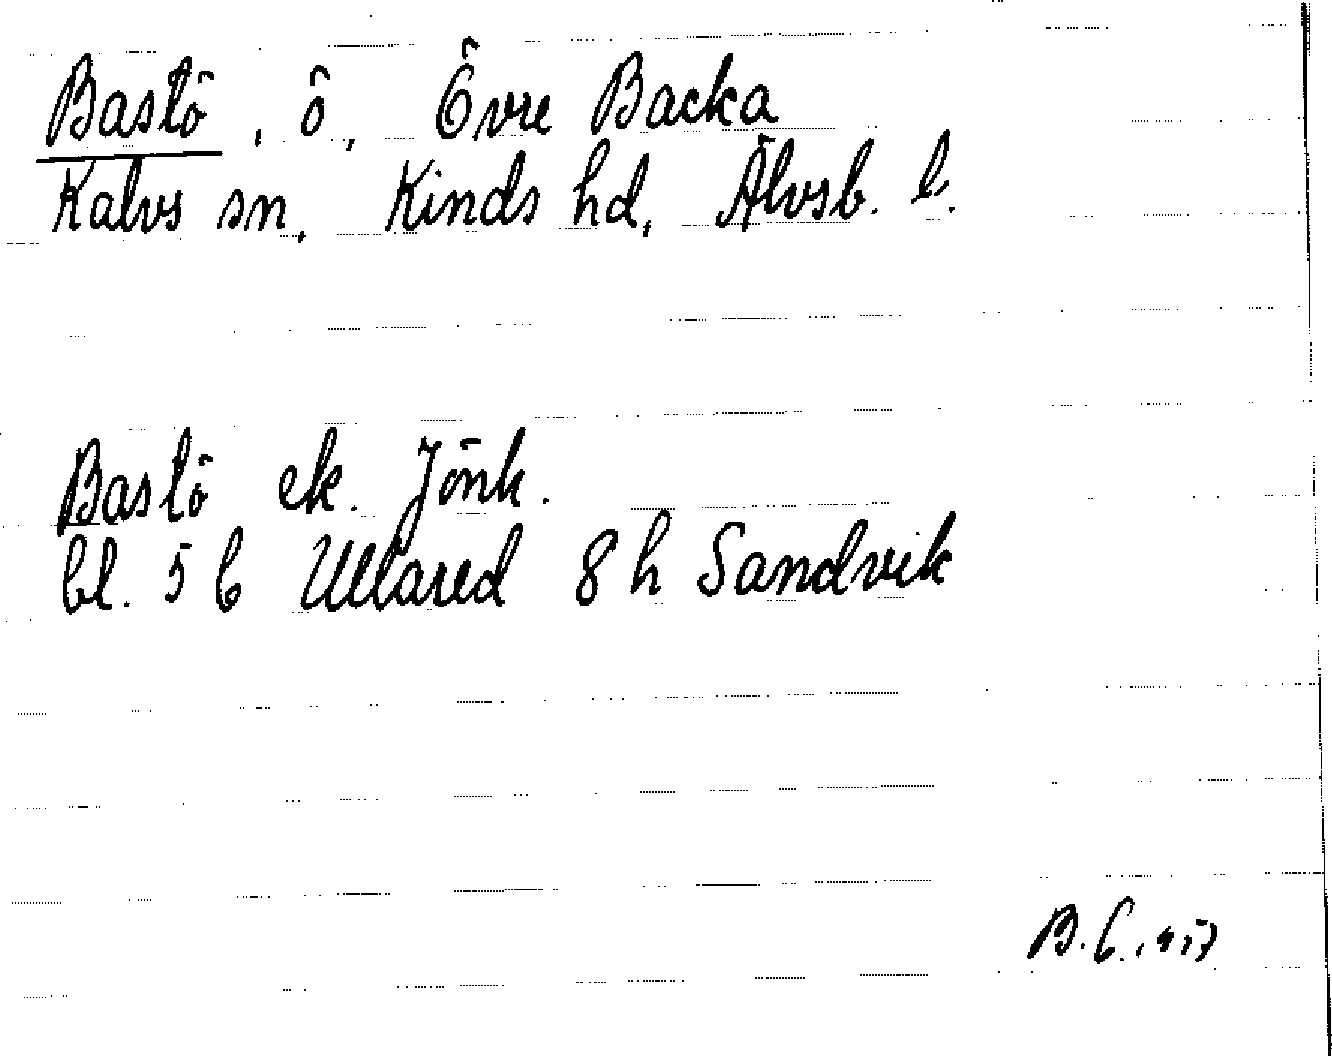 Bastö, ö, Övre Backa
Kalvs sn, Kinds hd, Älvsb. l.
Bastö ek. Jönk.
bl. 5 b Ullared 8 h Sandvik
B.